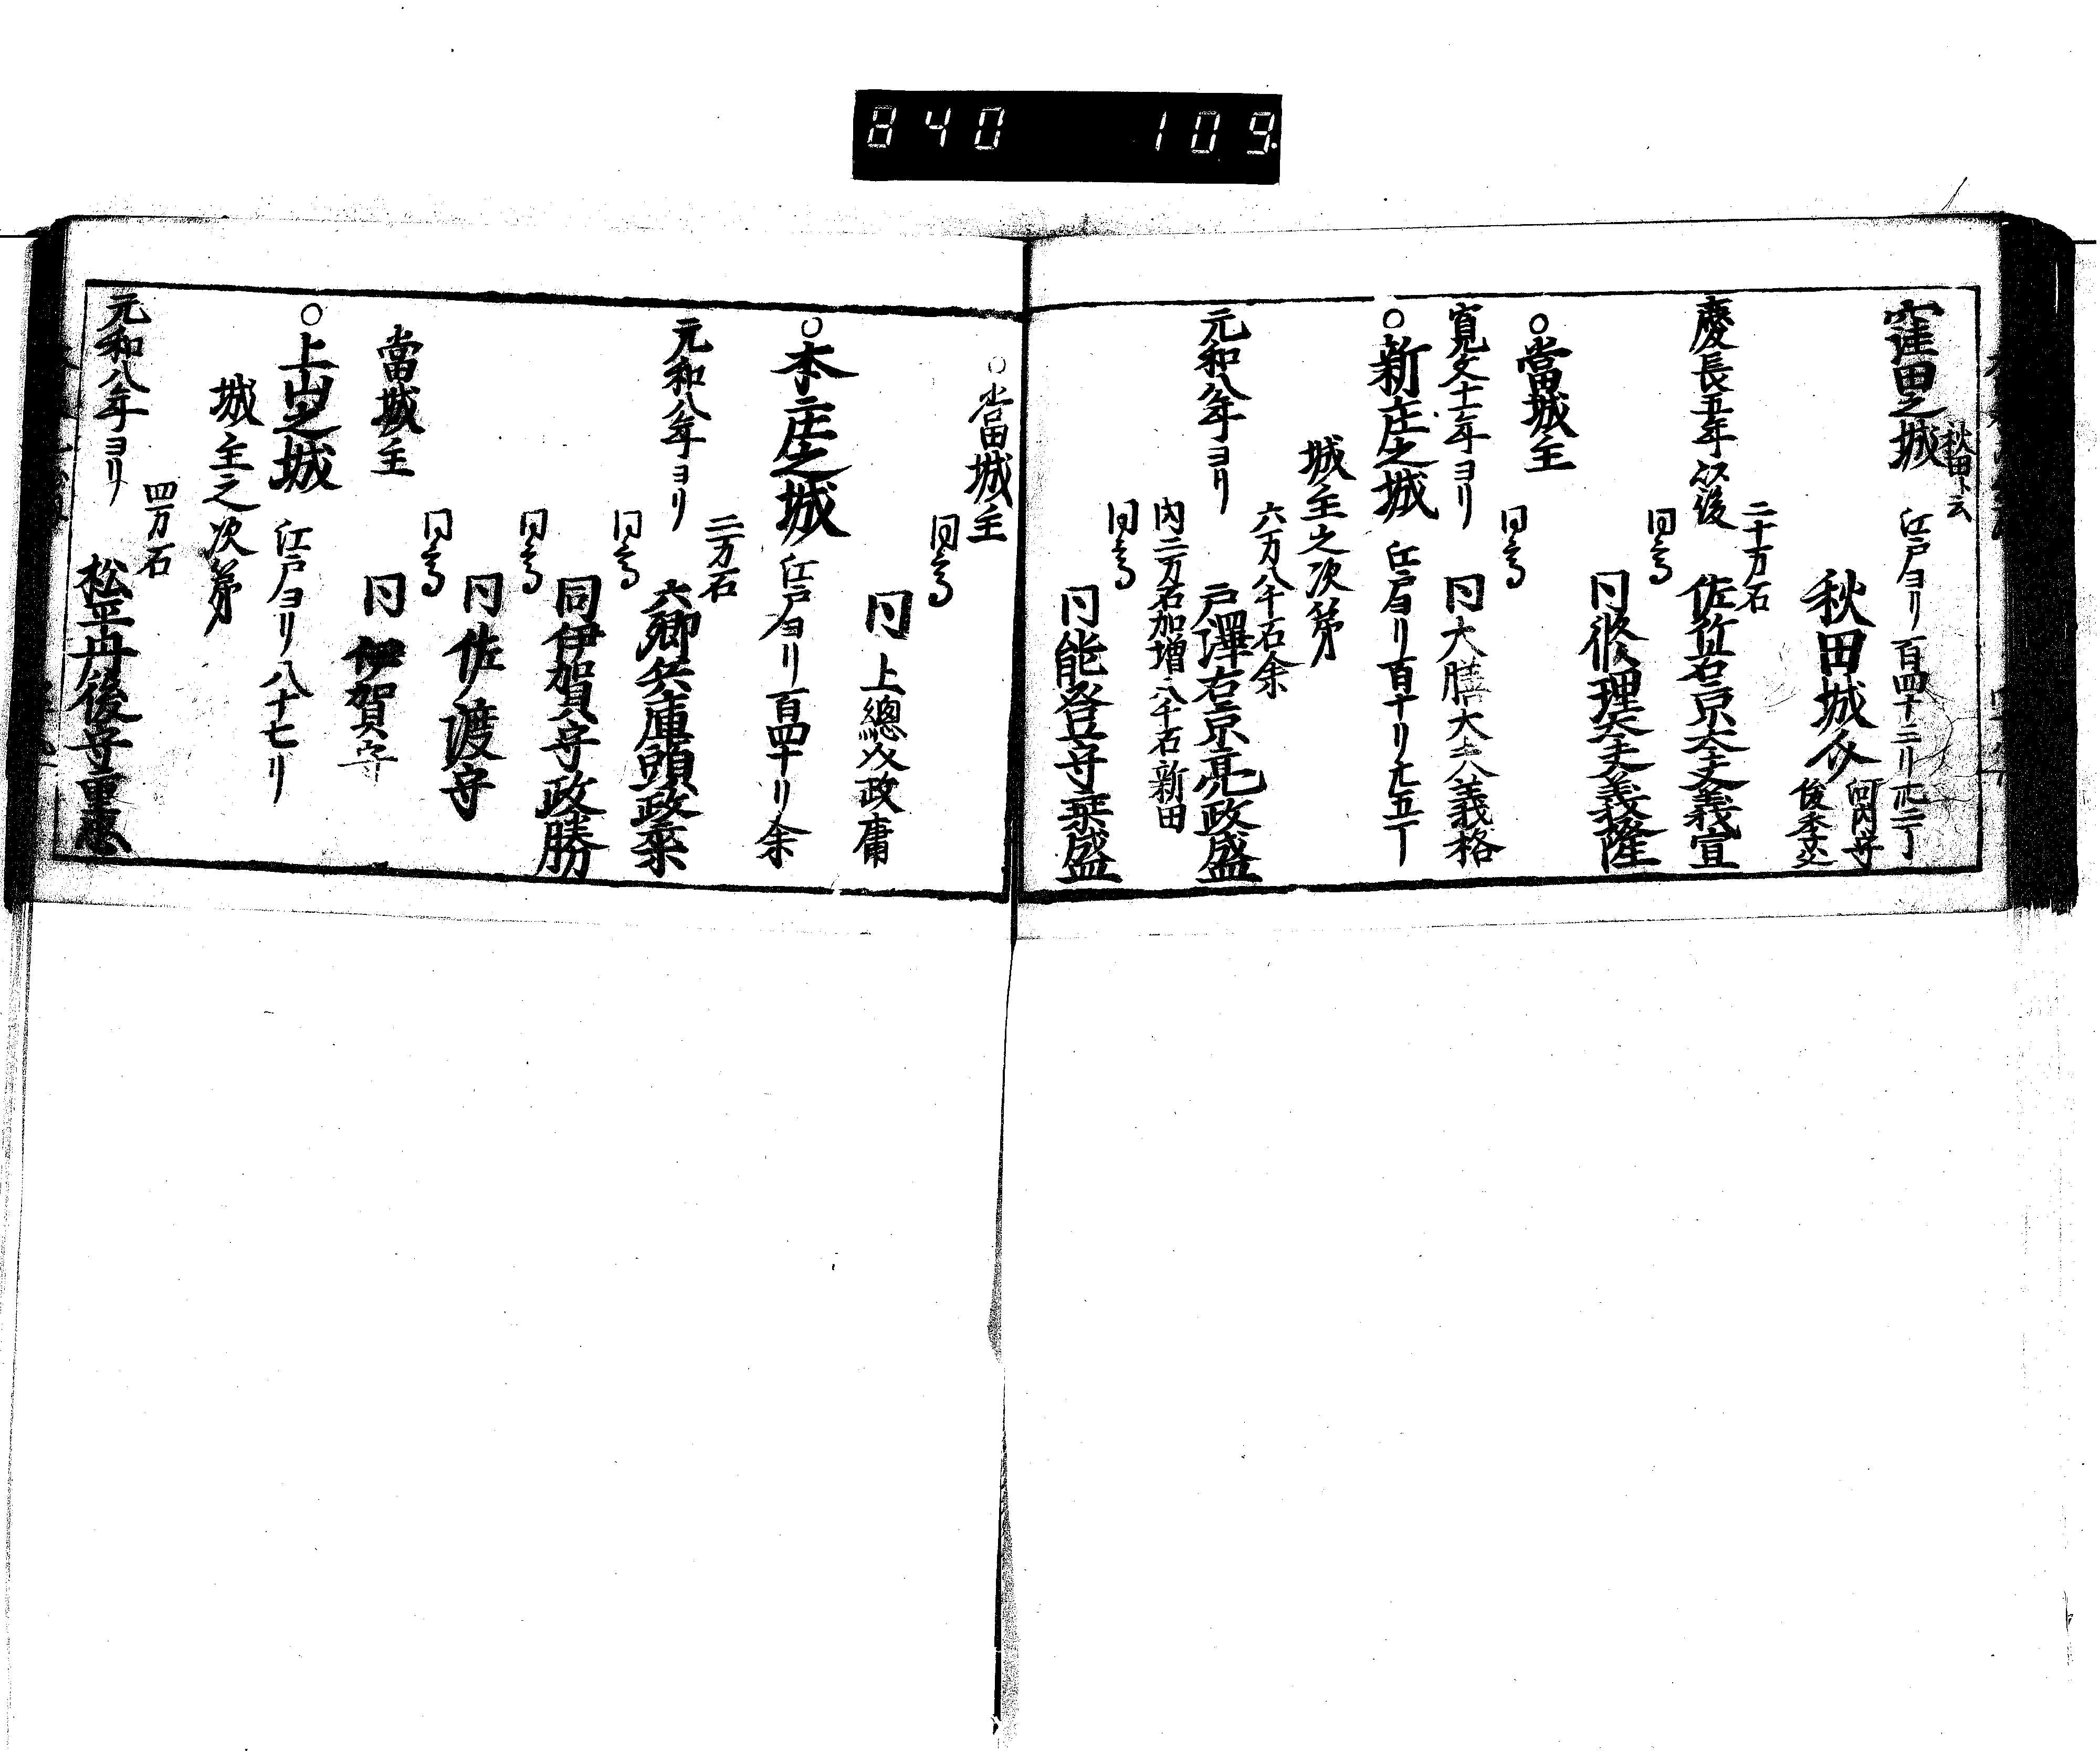 840 109
窪田之城 秋田ト云 江戸ヨリ百四十三リ廿二丁
秋田城介 河内守 後季 
二十万石
慶長五年以後 佐竹右京大夫義宣
同高
同修理大夫義隆
○當城主
同高
寛文十二年ヨリ 同大膳大夫義格
○新庄之城 江戸ヨリ百十リ廿五丁
城主之次第
六万八千石余
元和八年ヨリ 戸澤右京亮政盛
内二万石加増八千石新田
同高
同能登守
○當城主
同高
同上總介政庸
○本庄之城 江戸ヨリ百四十リ余
二万石
元和八年ヨリ 六郷兵庫頭政乗
同高
同伊賀守政勝
同高
同佐渡守
同高
當城主 同伊賀守
○上山之城 江戸ヨリ八十七リ
城主之次第
四万石
元和八年ヨリ 松平丹後守重忠